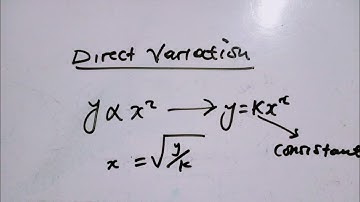 Direct Variation
y ∝ x² → y = Kx²
constant
x = √(y/K)